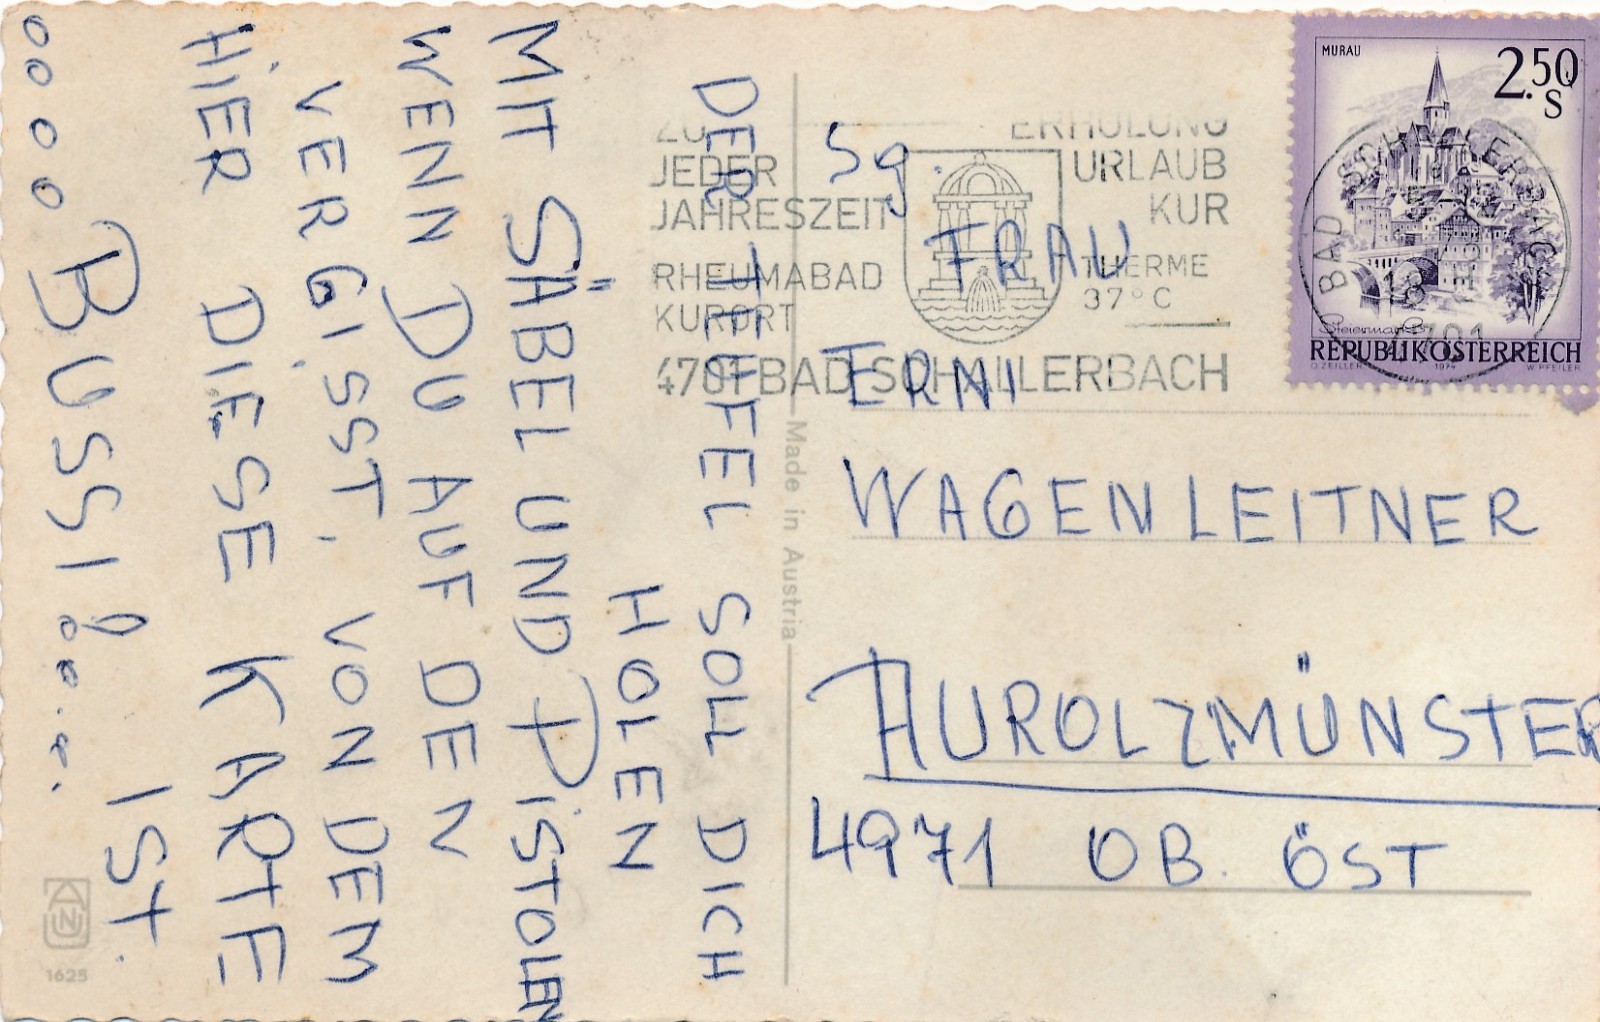 DER TEUFEL SOLL DICH
HOLEN
MIT SÄBEL UND PISTOLEN
WENN DU AUF DEN
VERGISST, VON DEM
HIER DIESE KARTE
IST.
BUSSI
Made in Austria
1625
ZU
JEDER
JAHRESZEIT
RHEUMABAD
KURORT
ERHOLUNG
URLAUB
KUR
THERME
37° C
4701 BAD SCHALLERBACH
MURAU
2.50
S
Steiermark
REPUBLIK ÖSTERREICH
O. ZEILLER 1974 W. PFEILER
BAD SCHALLERBACH
4701
Sg.
FRAU
ERNI
WAGENLEITNER
AUROLZMÜNSTER
4971 OB. ÖST